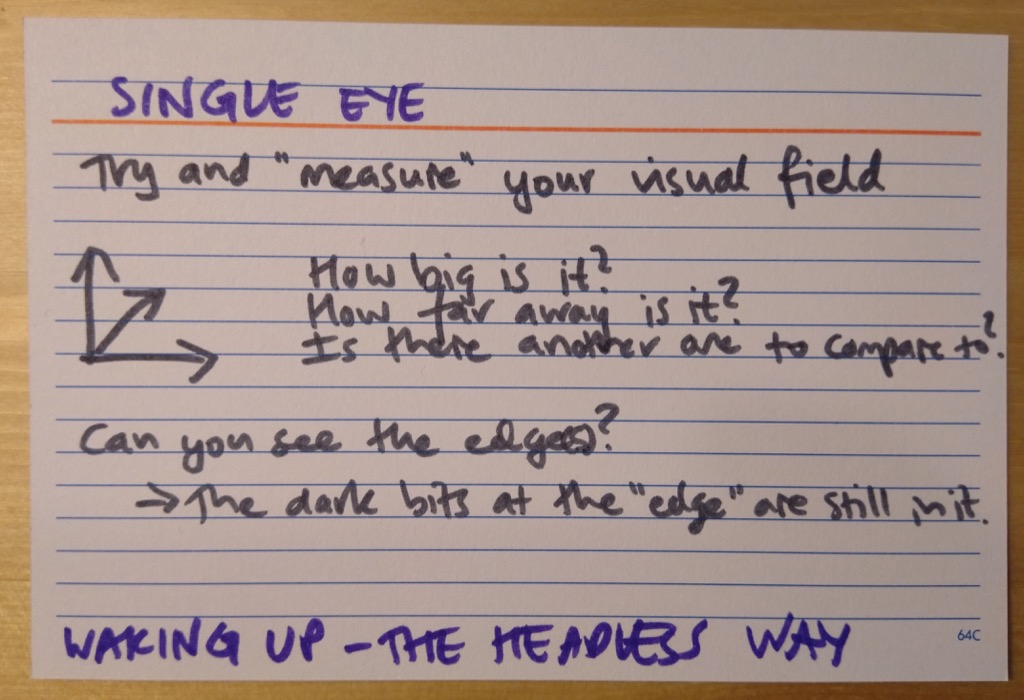 SINGLE EYE
Try and "measure" your visual field
How big is it?
How far away is it?
Is there another one to compare to?
Can you see the edge(s)?
→ The dark bits at the "edge" are still in it.
WAKING UP - THE HEADLESS WAY
64C